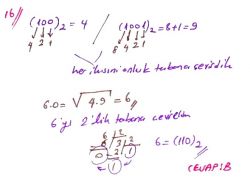 16//
(100)₂ = 4 / (1001)₂ = 8+1 = 9
4 2 1 8 4 2 1
her ikisini onluk tabana çevirdik
G.O = √4.9 = 6//
6 yı 2'lik tabana çevirelim
6 2
6 3 2
0 2 1
1
6 = (110)₂
CEVAP: B